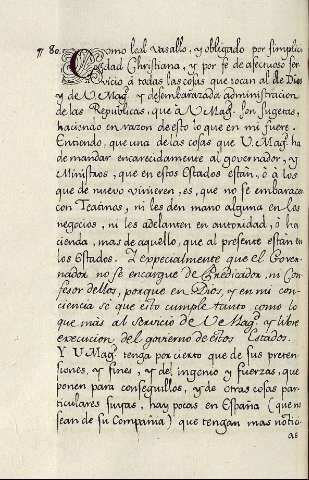 ¶ 80. Como leal vasallo, y obligado por simplici
dad Christiana, y por fe de afectuoso ser
vicio à todas las cosas que tocan al de Dios
y de V Magᵈ. y desembarazada administracion
de las Republicas, que à V Magᵈ. son sugetas,
haciendo en razon de esto lo que en mi fuere.
Entiendo, que una de las cosas que V. Magᵈ. ha
de mandar encarecidamente al governador, y
Ministros, que en estos Estados están, ò à los
que de nuevo vinieren, es, que no se embaracen
con Teatinos, ni les den mano alguna en los
negocios, ni les adelanten en autoridad, ò ha
cienda, mas de aquello, que al presente están en
los Estados. Y especialmente que el Gover-
nador no se encargue de Predicador, ni Con
fesor dellos, porque en Dios, y en mi con-
ciencia sè que esto cumple tanto, como lo
que más al servicio de V Magᵈ. y libre
execucion del govierno de estos Estados.
Y V Magᵈ. tenga por cierto que de sus preten
siones, y fines, y del ingenio y fuerzas, que
ponen para conseguillos, y de otras cosas par-
ticulares suyas, hay pocas en España (que no
sean de su Compañia) que tengan mas notici
as